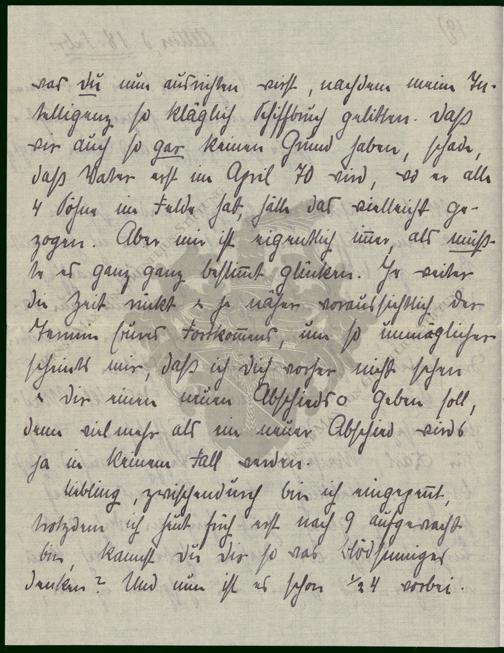 was du nun ausrichten wirst, nachdem meine In-
telligenz so kläglich Schiffbruch gelitten. Daß
wir auch so gar keinen Grund haben, schade,
daß Vater erst im April 70 wird, wo er alle
4 Söhne im Felde hat, hätte das vielleicht ge-
zogen. Aber mir ist eigentlich immer, als müß-
te es ganz ganz bestimmt glücken. Je weiter
die Zeit rückt & je näher voraussichtlich der
Termin Eures Fortkommens, um so unmöglicher
scheints mir, daß ich Dich vorher nicht sehen
& dir einen neuen Abschieds geben soll,
denn viel mehr als ein neuer Abschied wirds
ja in keinem Fall werden.
Liebling, zwischendurch bin ich eingepennt,
trotzdem ich heut früh erst nach 9 aufgewacht
bin, kannst du dir so was Blödsinniges
denken? Und nun ist es schon 1/2 4 vorbei.